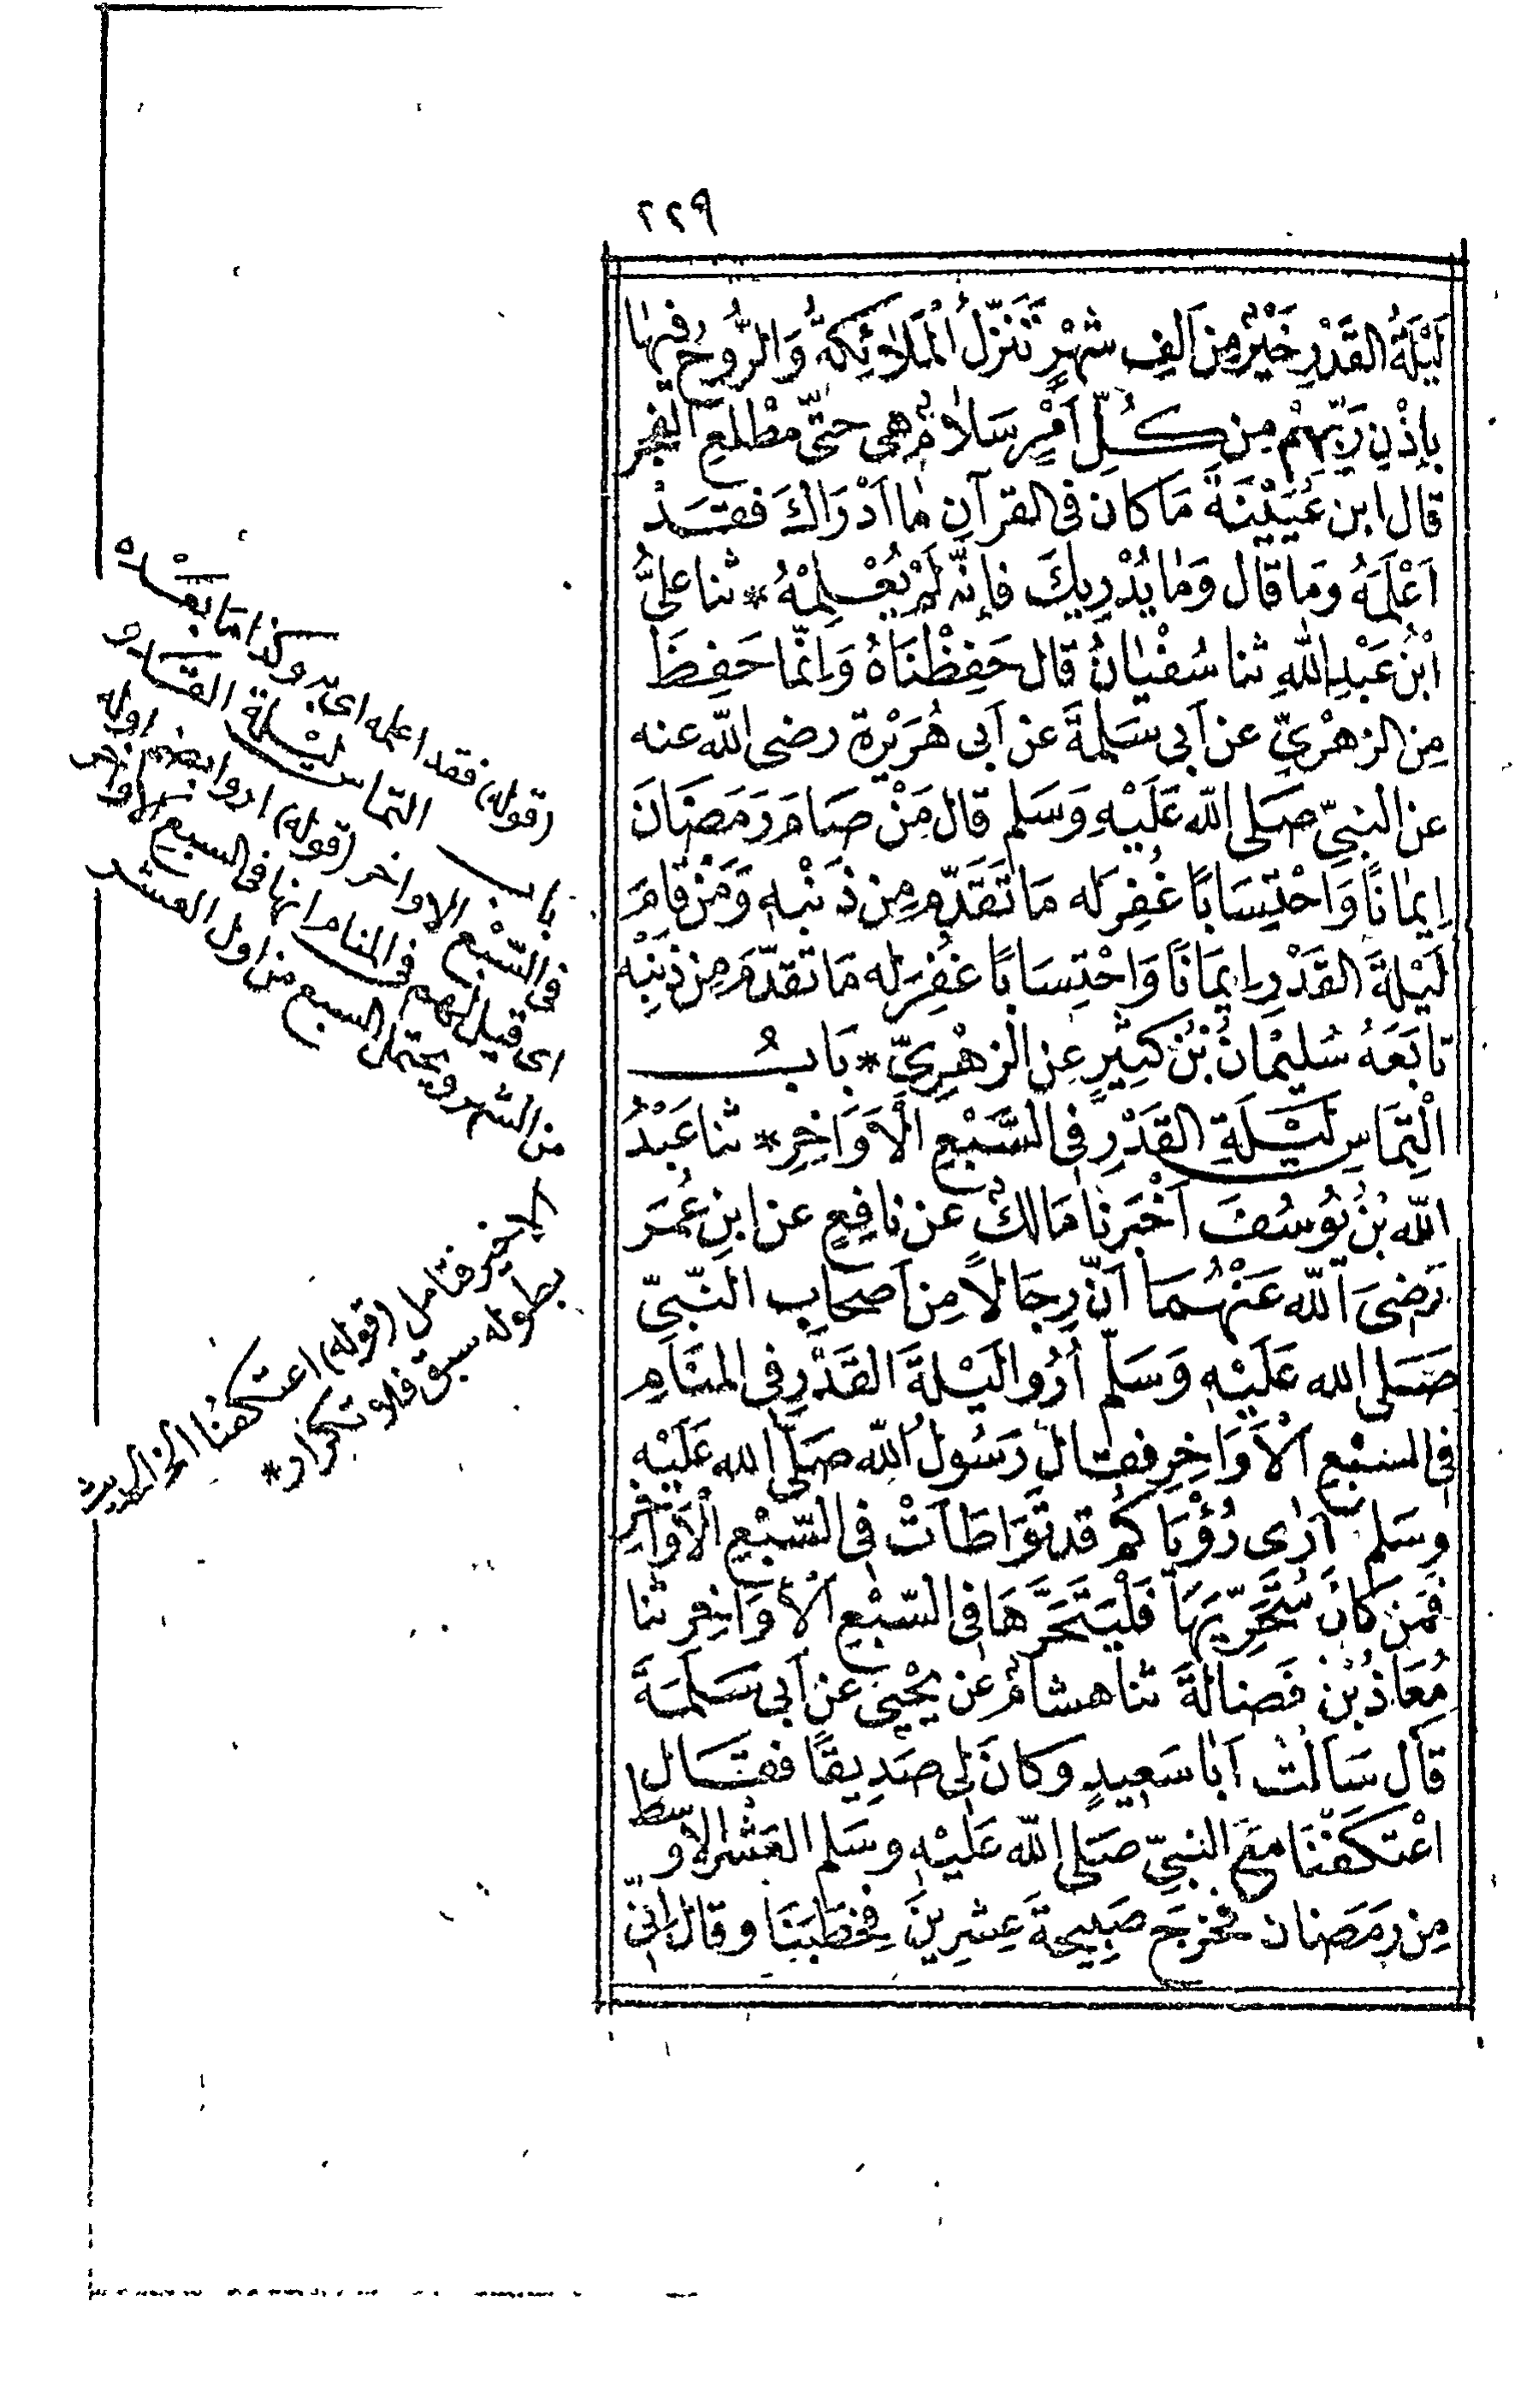 ٢٢٩
لَيْلَةُ القَدْرِ خَيْرٌ مِن اَلفِ شَهْرٍ تَنَزَّلُ الْمَلَائِكَةُ وَالرُّوحُ فِيهَا
بِاِذْنِ رَبِّهِمْ مِن كُلِّ اَمْرٍ سَلَامٌ هِىَ حَتّٰى مَطْلَعِ الفَجْرِ
قال ابن عُيَيْنَةَ مَا كانَ فى القرآنِ مَا اَدْرَاكَ فقَدْ
اَعْلَمَهُ وَمَا قال وَمَا يُدْرِيكَ فاِنَّه لَمْ يُعْلِمْهُ * ثنا عَلِىُّ
ابْنُ عَبْدِ اللّٰهِ ثنا سُفْيَانُ قال حَفِظْنَاهُ وَاِنَّمَا حَفِظَ
مِن الزهْرِىِّ عن اَبِى سَلَمَةَ عن اَبِى هُرَيْرة رضى اللّٰه عنه
عن النبِىِّ صَلى اللّٰه عَلَيْهِ وَسَلم قال مَنْ صَامَ رَمَضَانَ
اِيمَانًا وَاحْتِسَابًا غُفِرَ له مَا تَقَدَّمَ مِن ذَنْبِه وَمَنْ قامَ
لَيْلَةَ القَدْرِ اِيمَانًا وَاحْتِسَابًا غُفِرَ له مَا تقدَّمَ مِن ذَنْبِه
تابَعَهُ سُلَيْمَانُ بْنُ كَثِيرٍ عن الزهْرِىِّ * بَابُ
الْتِمَاسِ لَيْلَةِ القَدْرِ فى السَّبْعِ الْاَوَاخِرِ * ثنا عَبْدُ
اللّٰه بْنُ يُوسُفَ اَخْبَرنا مَالكٌ عن نافِعٍ عن ابنِ عُمَرَ
رَضِىَ اللّٰه عَنْهُمَا اَنَّ رِجَالًا مِن اَصحَابِ النَّبِىِّ
صَلى الله عَلَيْهِ وَسَلم اُرُوا لَيْلَةَ القَدْرِ فى المنَامِ
فى السَبْعِ الْاَوَاخِرِ فقال رَسُولُ اللّٰه صَلى الله عَلَيْهِ
وسَلم اَرٰى رُؤْيَاكم قد تَوَاطَأَتْ فى السَّبْعِ الْاَوَاخِرِ
فمَن كانَ مُتَحَرِّيَهَا فَلْيَتَحَرَّهَا فى السَّبْعِ الْاَوَاخِرِ ثنا
مُعَاذُ بْنُ فَضالةَ ثنا هشامٌ عن يَحْيى عن اَبِى سَلَمَةَ
قال سَاَلتُ اَبَا سَعِيدٍ وكانَ لِى صَدِيقًا فقَال
اعْتكَفْنَا مَعَ النبِىِّ صَلى اللّٰه عَلَيْهِ وسَلم العَشْرَ الاوسَط
مِن رمَضان فخرَجَ صَبِيحةَ عِشرِينَ فخَطَبَنَا وقال اِنِّى
(قوله) فقد اعلمه اى به وكذا ما بعْده
باب التماس ليْلة القَدر
فى السّبْع الاواخر (قوله) اروا بضم اوله
اى قيل لهم فى المنام انها فى السبع الاواخر
من الشهر ويحتمل السبع من اول العشر
الاخير فتامل (قوله) اعتكفنا الخ الحديث
بطوله سبق فلا تكرار *